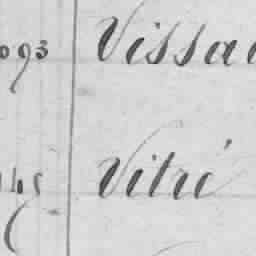 093 Vissa
145 Vitré